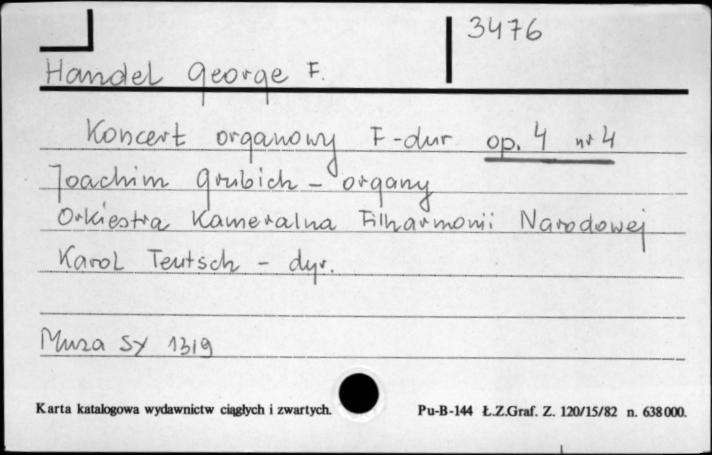 3476
Handel George F.
Koncert organowy F-dur op. 4 nr 4
Joachim Grubich - organy
Orkiestra Kameralna Filharmonii Narodowej
Karol Teutsch - dyr.
Muza SX 1319
Karta katalogowa wydawnictw ciągłych i zwartych. Pu-B-144 Ł.Z.Graf. Z. 120/15/82 n. 638000.